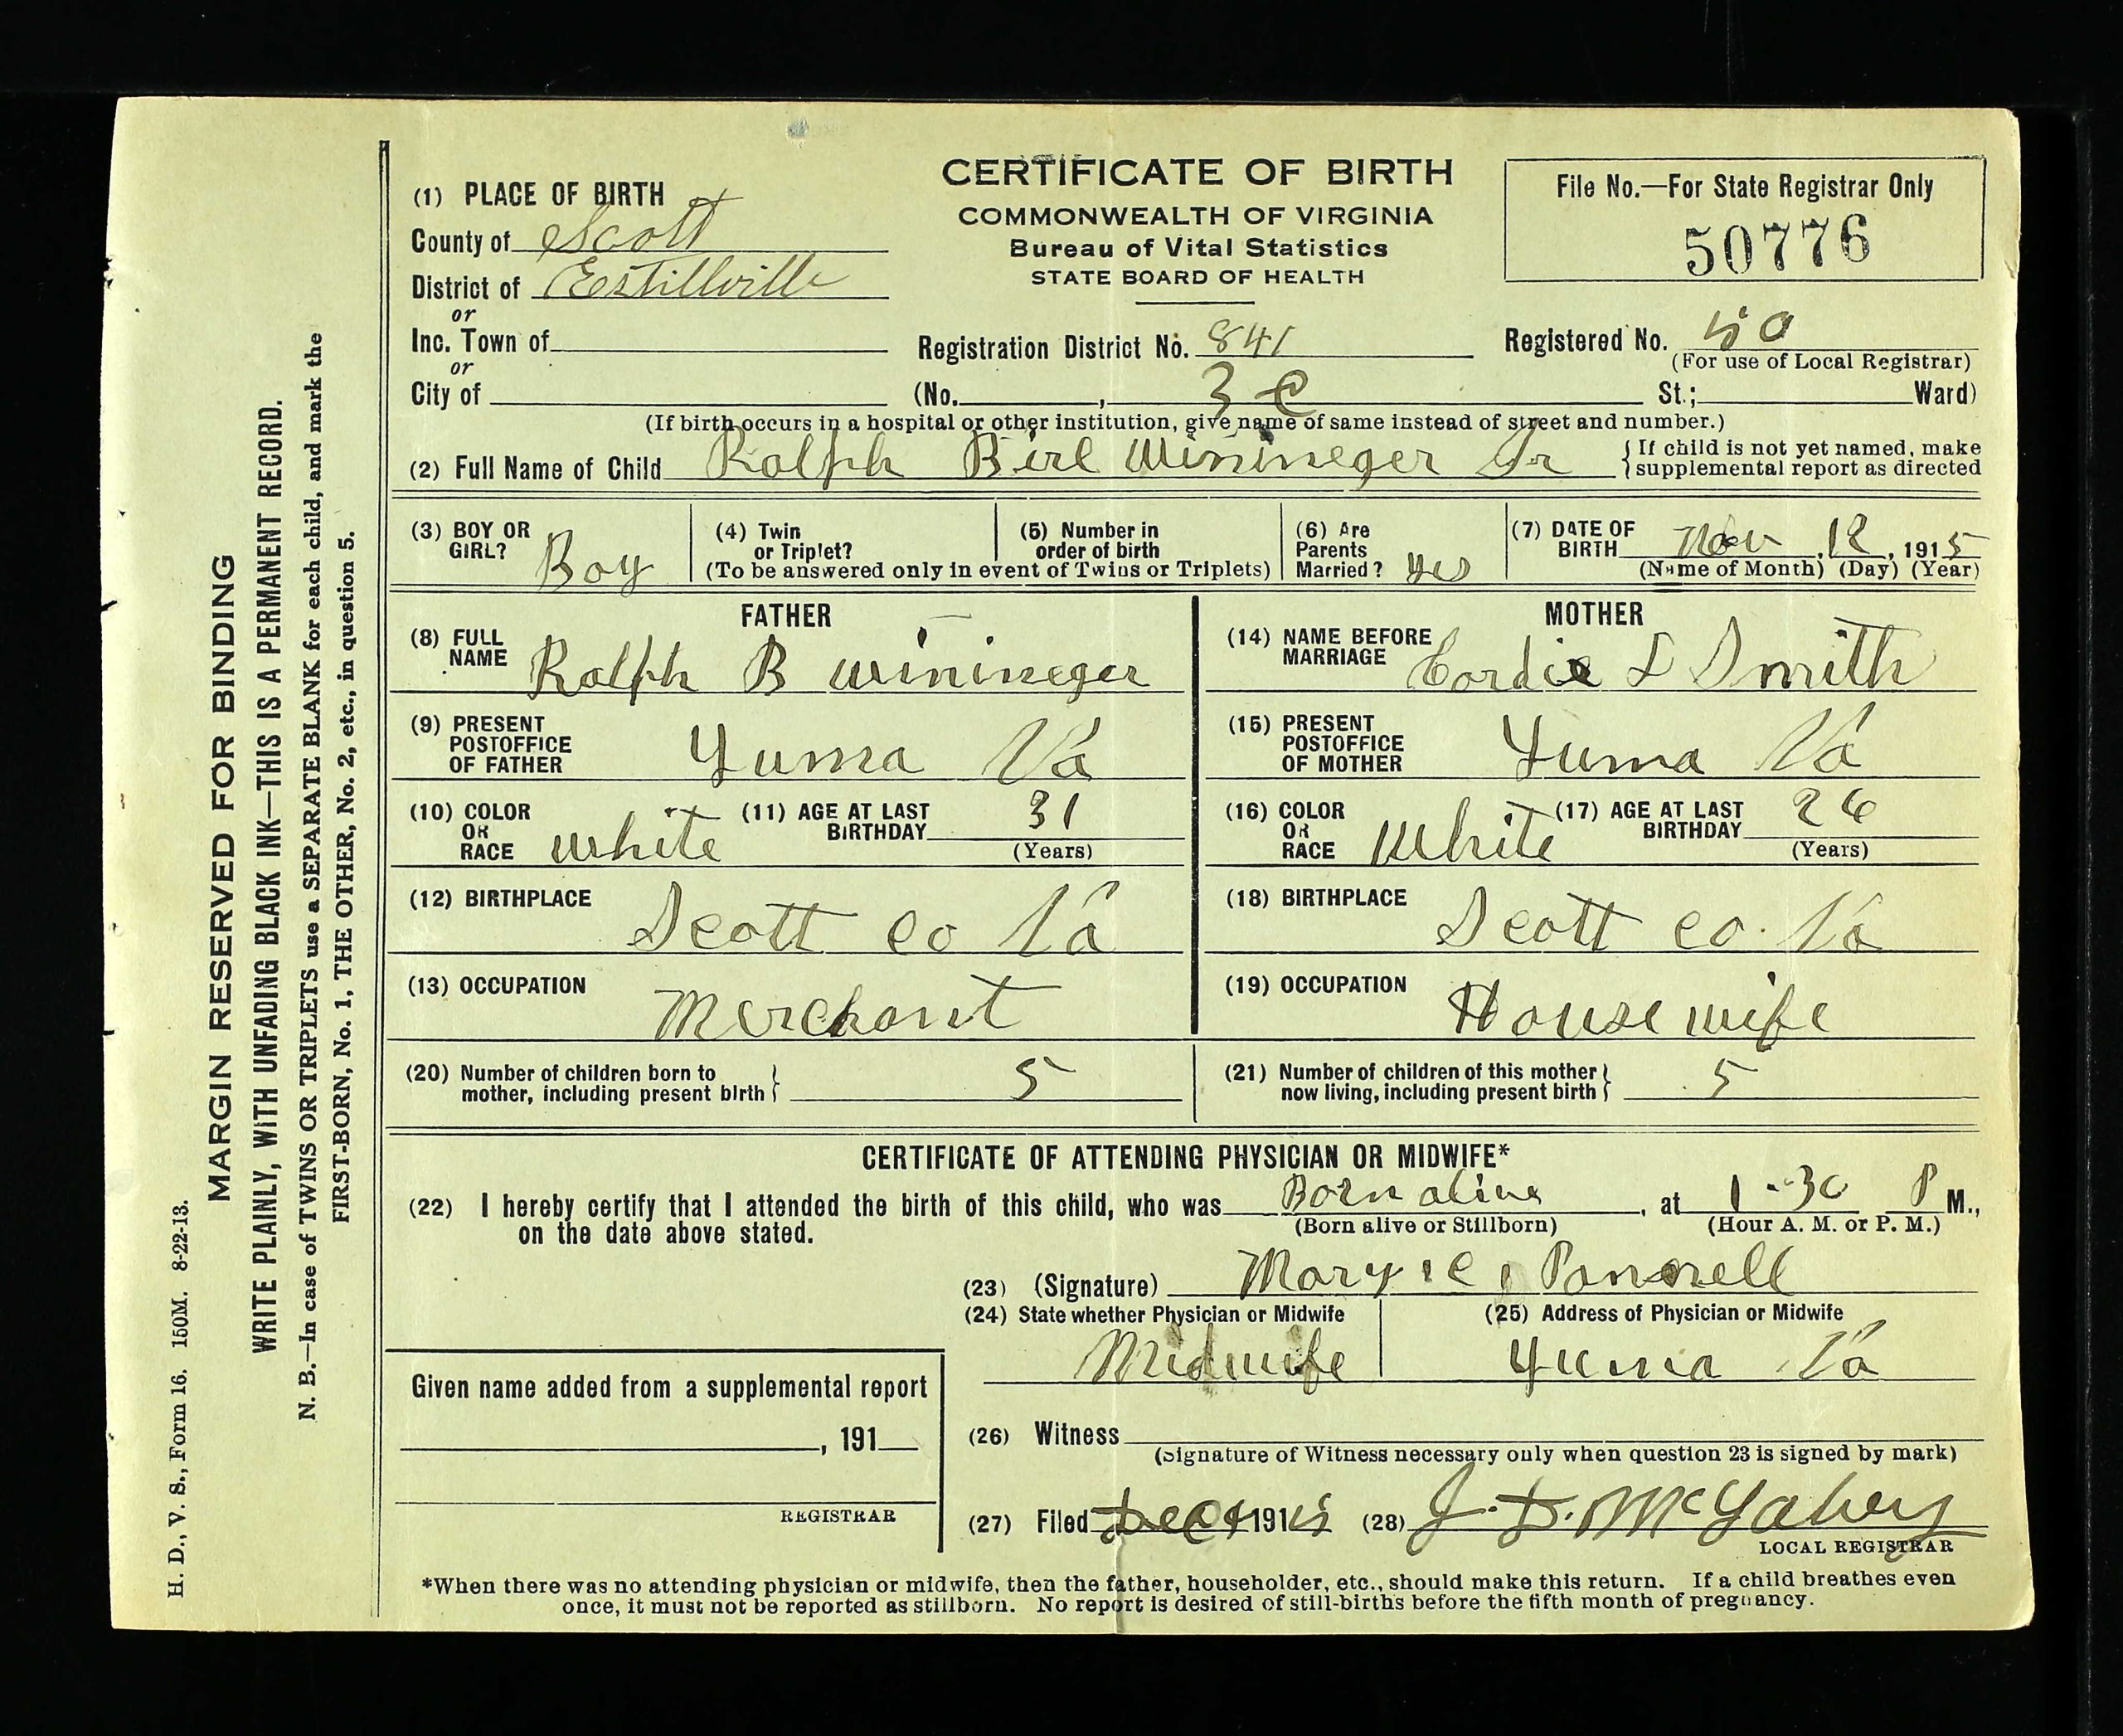 MARGIN RESERVED FOR BINDING
WRITE PLAINLY, WITH UNFADING BLACK INK—THIS IS A PERMANENT RECORD.
N. B.—In case of TWINS OR TRIPLETS use a SEPARATE BLANK for each child, and mark the
FIRST-BORN, No. 1, THE OTHER, No. 2, etc., in question 5.
H. D., V. S., Form 16. 150M. 8-22-13.
CERTIFICATE OF BIRTH
COMMONWEALTH OF VIRGINIA
Bureau of Vital Statistics
STATE BOARD OF HEALTH
File No.—For State Registrar Only
50776
(1) PLACE OF BIRTH
County of Scott
District of Estillville
or
Inc. Town of
Registration District No. 841
Registered No. 50
(For use of Local Registrar)
or
City of (No. , 3 C St.; Ward)
(If birth occurs in a hospital or other institution, give name of same instead of street and number.)
(2) Full Name of Child Ralph Birl Winineger Jr
{ If child is not yet named, make
supplemental report as directed
(3) BOY OR GIRL? Boy
(4) Twin or Triplet?
(5) Number in order of birth
(To be answered only in event of Twins or Triplets)
(6) Are Parents Married? yes
(7) DATE OF BIRTH Nov, 12, 1915
(Name of Month) (Day) (Year)
FATHER
(8) FULL NAME Ralph B Winineger
(9) PRESENT POSTOFFICE OF FATHER Yuma Va
(10) COLOR OR RACE White
(11) AGE AT LAST BIRTHDAY 31
(Years)
(12) BIRTHPLACE Scott Co Va
(13) OCCUPATION Merchant
MOTHER
(14) NAME BEFORE MARRIAGE Cordie L Smith
(15) PRESENT POSTOFFICE OF MOTHER Yuma Va
(16) COLOR OR RACE White
(17) AGE AT LAST BIRTHDAY 26
(Years)
(18) BIRTHPLACE Scott Co. Va
(19) OCCUPATION House wife
(20) Number of children born to mother, including present birth } 5
(21) Number of children of this mother now living, including present birth } 5
CERTIFICATE OF ATTENDING PHYSICIAN OR MIDWIFE*
(22) I hereby certify that I attended the birth of this child, who was Born alive, at 1-30 P M.,
(Born alive or Stillborn) (Hour A. M. or P. M.)
on the date above stated.
(23) (Signature) Mary C. Pannell
(24) State whether Physician or Midwife
Midwife
(25) Address of Physician or Midwife
Yuma Va
Given name added from a supplemental report
, 191
REGISTRAR
(26) Witness
(Signature of Witness necessary only when question 23 is signed by mark)
(27) Filed Dec 1915 (28) J. D. 
LOCAL REGISTRAR
*When there was no attending physician or midwife, then the father, householder, etc., should make this return. If a child breathes even
once, it must not be reported as stillborn. No report is desired of still-births before the fifth month of pregnancy.